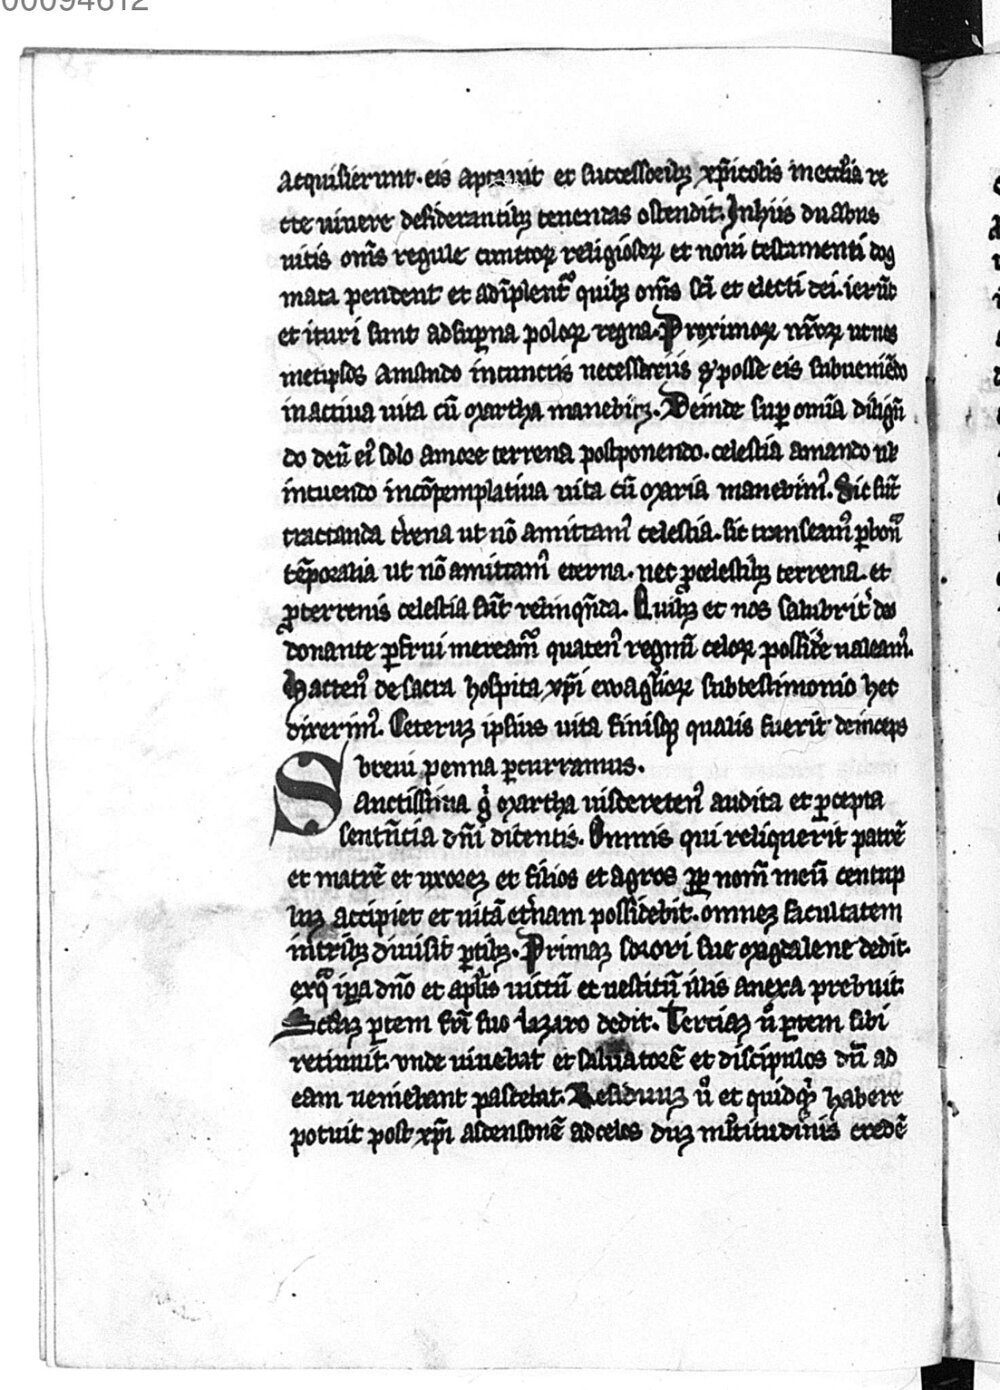 00094612
acquisierunt. eis aptauit et successoribꝫ xp̄icolis in eccl̄ia re
cte uiuere desiderantibꝫ tenendas ostendit. In hiis duabus
uitis om̄s regule cunctoꝝ religiosoꝝ et noui testamenti dog
mata pendent et adīplent᷑ quibꝫ om̄s sc̄i et electi dei. ierūt
et ituri sunt ad sup̄na poloꝝ regna. Proximoꝝ nr̄oꝝ ut nos
metipsos amando in cunctis necessariis ꝓ posse eis subueniēdo
in actiua uita cū martha manebimꝰ. Deinde sup om̄ia diligēn
do deū eiꝰ solo amore terrena postponendo. celestia amando ul̓
intuendo in cōtemplatiua uita cū maria manebimꝰ. Sic sūt
tractanda tr̄ena ut nō amittamꝰ celestia. sic transeamꝰ ꝑ bona
tēporalia ut nō amittamꝰ eterna. nec ꝓ celestibꝫ terrena. et
ꝓ terrenis celestia sūt relinquēda. Quibꝫ et nos salubrit̓ deo
donante ꝑfrui mereamꝰ quatenꝰ regnū celoꝝ possidere ualeamꝰ.
Hactenꝰ de sacra hospita xp̄i ewāglioꝝ sub testimonio hec
diximꝰ. Ceteruꝫ ipsius uita finisqꝫ qualis fuerit deinceps
breui penna ꝑcurramus.
Sanctissima gͥ martha uiscereten᷒ audita et ꝑcepta
sentētia dn̄i dicentis. Omnis qui reliquerit patrē
et matrē et uxoreꝫ et filios et agros ꝓpt̓ nom̄ meū centup
luꝫ accipiet et uitā et̓nam possidebit. omneꝫ facultatem
in tribꝫ diuisit ꝑtibꝫ. Primaꝫ sorori sue magdalene dedit.
ex qͣ ip̄a dn̄o et ap̄lis uictū et uestitū illis anexa prebuit.
Scd̄aꝫ ꝑtem fr̄i suo lazaro dedit. Terciaꝫ u̓ ꝑtem sibi
retinuit. unde uiuebat et saluatorē et discipulos dū ad
eam ueniebant pascebat. Residuuꝫ u̓ et quidqͣ habere
potuit post xp̄i ascensionē ad celos duꝫ ml̓titudinis credē